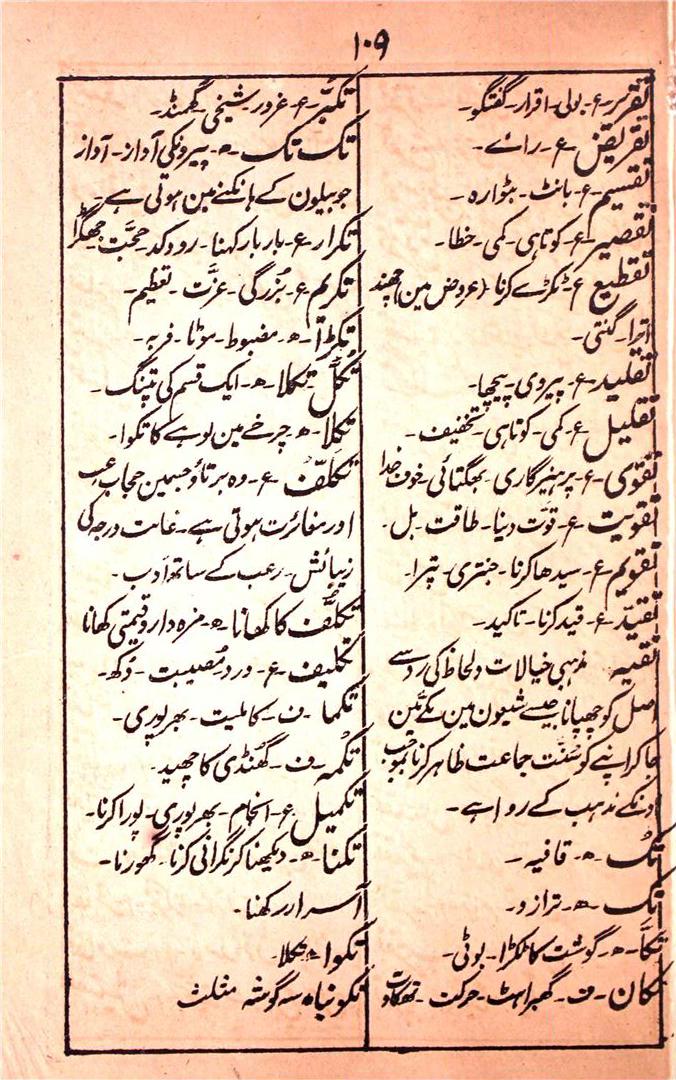 ۱۰۹
تقریر۔ ع۔ بولی۔ اقرار۔ گفتگو۔
تقریض ع۔ رائے۔
تقسیم۔ ع۔ بانٹ۔ بٹوارہ۔
تقصیر۔ ع۔ کوتاہی۔ کمی۔ خطا۔
تقطیع ع۔ ٹکڑے کرنا۔ (عروض مین) چھند
اترا۔ گنتی۔
تقلید۔ ع۔ پیروی۔ پیچھا۔
تقلیل ع۔ کمی۔ کوتاہی۔ تخفیف۔
تقویٰ۔ ع۔ پرہیزگاری۔ بھگتائی۔ خوف خدا
تقویت۔ ع۔ قوّت دینا۔ طاقت۔ بل۔
تقویم ع۔ سیدھا کرنا۔ جنتری۔ پترا۔
تقیّد۔ ع۔ قید کرنا۔ تاکید۔
تقیہ۔ مذہبی خیالات و لحاظ کی رو سے
اصل کو چھپانا جیسے شیعون مین مکّے مین
جاکر اپنے کو سنّت جماعت ظاہر کرنا بموجب
اونکے مذہب کے روا ہے۔
تُک۔ ھ۔ قافیہ۔
تک۔ ھ۔ ترازو۔
تکّا۔ ھ۔ گوشت کا ٹکڑا۔ بوٹی۔
تکان۔ ف۔ گھبراہٹ۔ حرکت۔ تھکاوٹ
تکبّر۔ ع۔ غرور۔ شیخی۔ گھمنڈ۔
تک تک۔ ھ۔ پیرونکی آواز۔ آواز
جو بیلون کے ہانکنے مین ہوتی ہے۔
تکرار۔ ع۔ بار بار کہنا۔ رد و کد۔ حجّت۔ جھگڑا
تکریم ع۔ بُزرگی۔ عزّت۔ تعظیم۔
تکڑا۔ ھ۔ مضبوط۔ موٹا۔ فربہ۔
تُکّل تکلا۔ ھ۔ ایک قسم کی پتنگ۔
تکلا۔ ھ۔ چرخے مین لوہے کا تکوا۔
تکلّف۔ ع۔ وہ برتاؤ جسمین حجاب
اور مغائرت ہوتی ہے۔ غایت درجہ کی
زیبائش۔ رعب کے ساتھ ادب۔
تکلّف کا کھانا۔ ھ۔ مزہ دار و قیمتی کھانا
تکلیف۔ ع۔ درد۔ مُصیبت۔ دُکھ۔
تکما۔ ف۔ کاملیت۔ بھرپوری۔
تکمہ۔ ف۔ گُھنڈی کا چھید۔
تکمیل ع۔ انجام۔ بھرپوری۔ پورا کرنا۔
تکنا۔ ھ۔ دیکھنا کر نگرانی کرنا۔ گھورنا۔
آسرا رکھنا۔
تکوا۔ ھ۔ تکلا۔
تکونیاہ سہ گوشہ مثلث